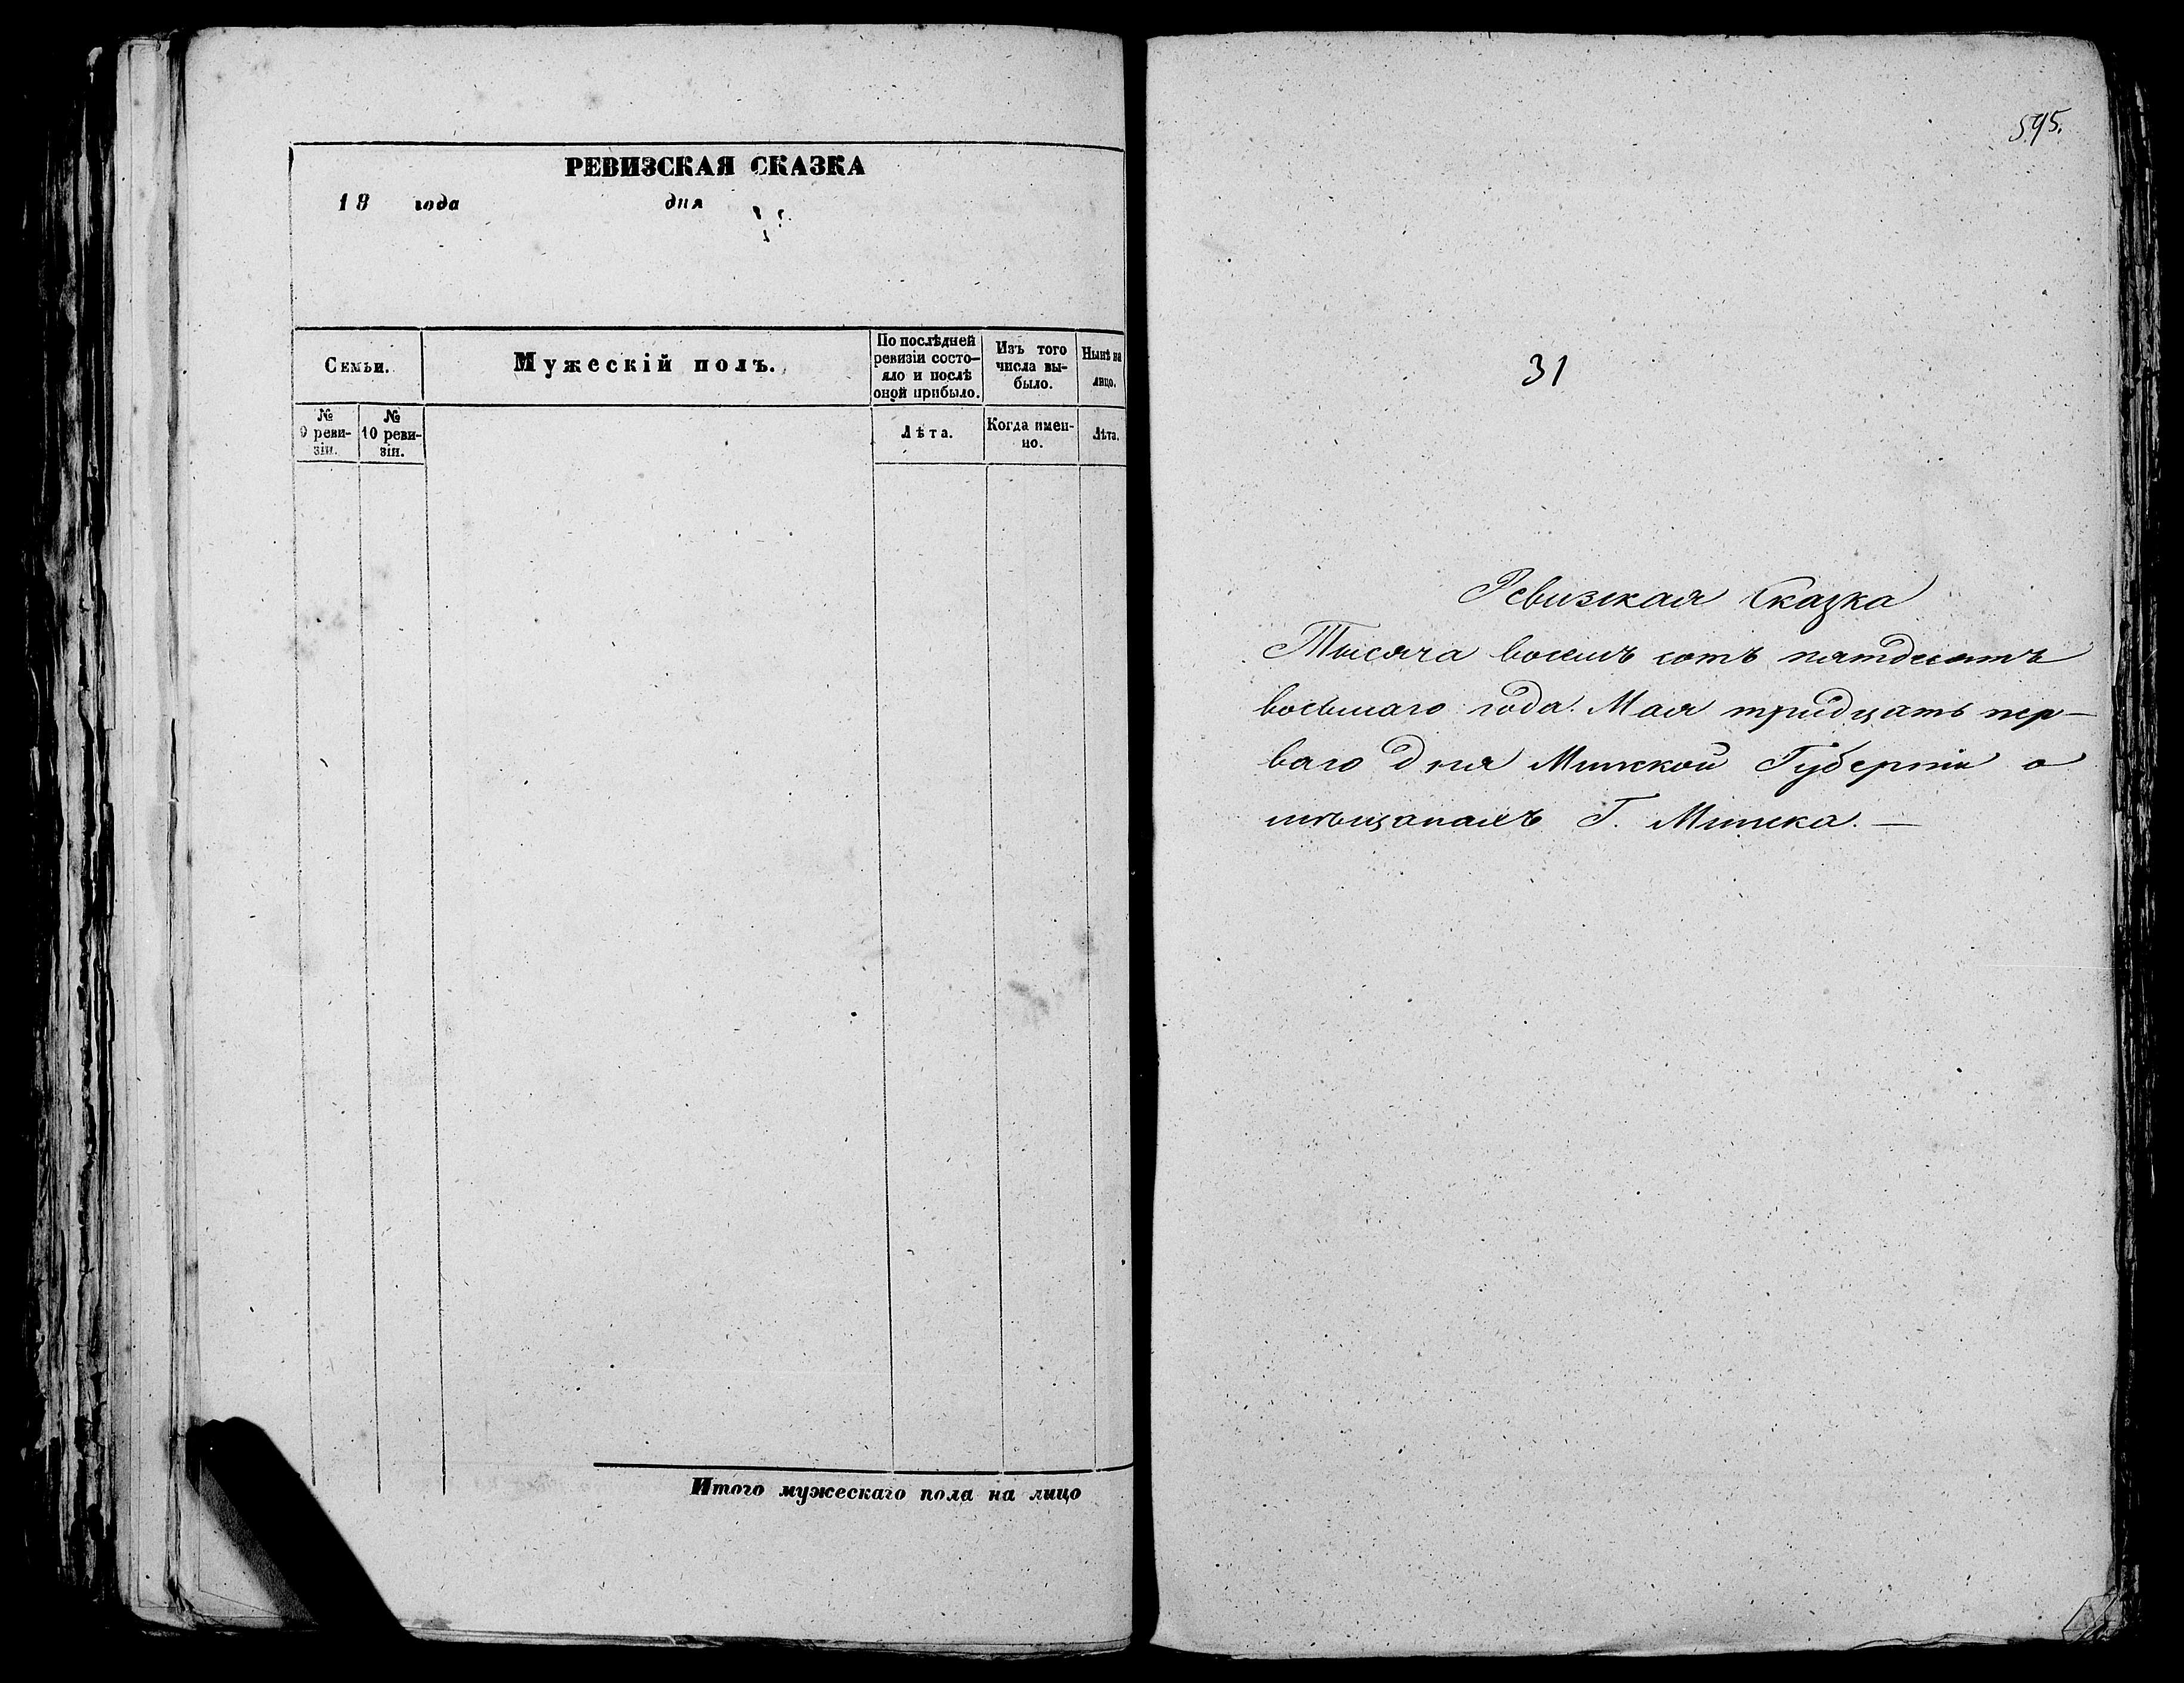 РЕВИЗСКАЯ СКАЗКА
18 года дня
Семьи.
Мужескій полъ.
По послѣдней
ревизіи состо-
яло и послѣ
оной прибыло.
Изъ того
числа вы-
было.
Нынѣ на
лицо.
№
9 реви-
зіи.
№
10 реви-
зіи.
Лѣта.
Когда имен-
но.
Лѣта.
Итого мужескаго пола на лицо
595.
31
Ревизская Сказка
Тысяча восемь сотъ пятдесятъ
восьмаго года Мая тридцать пер-
ваго дня Минской Губерніи о
мѣщанахъ Г. Минска. —